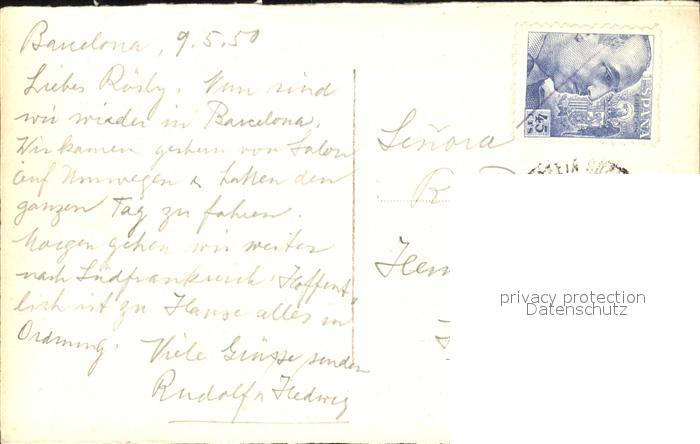 Barcelona, 9.5.50
Liebes Rösly. Nun sind
wir wieder in Barcelona.
Wir kamen gestern von Salou
auf Umwegen & hatten den
ganzen Tag zu fahren.
Morgen gehen wir weiter
nach Südfrankreich. Hoffent-
lich ist zu Hause alles in
Ordnung. Viele Grüsse senden
Rudolf & Hedwig
Señora
R
ESPAÑA
45
CTS
privacy protection
Datenschutz